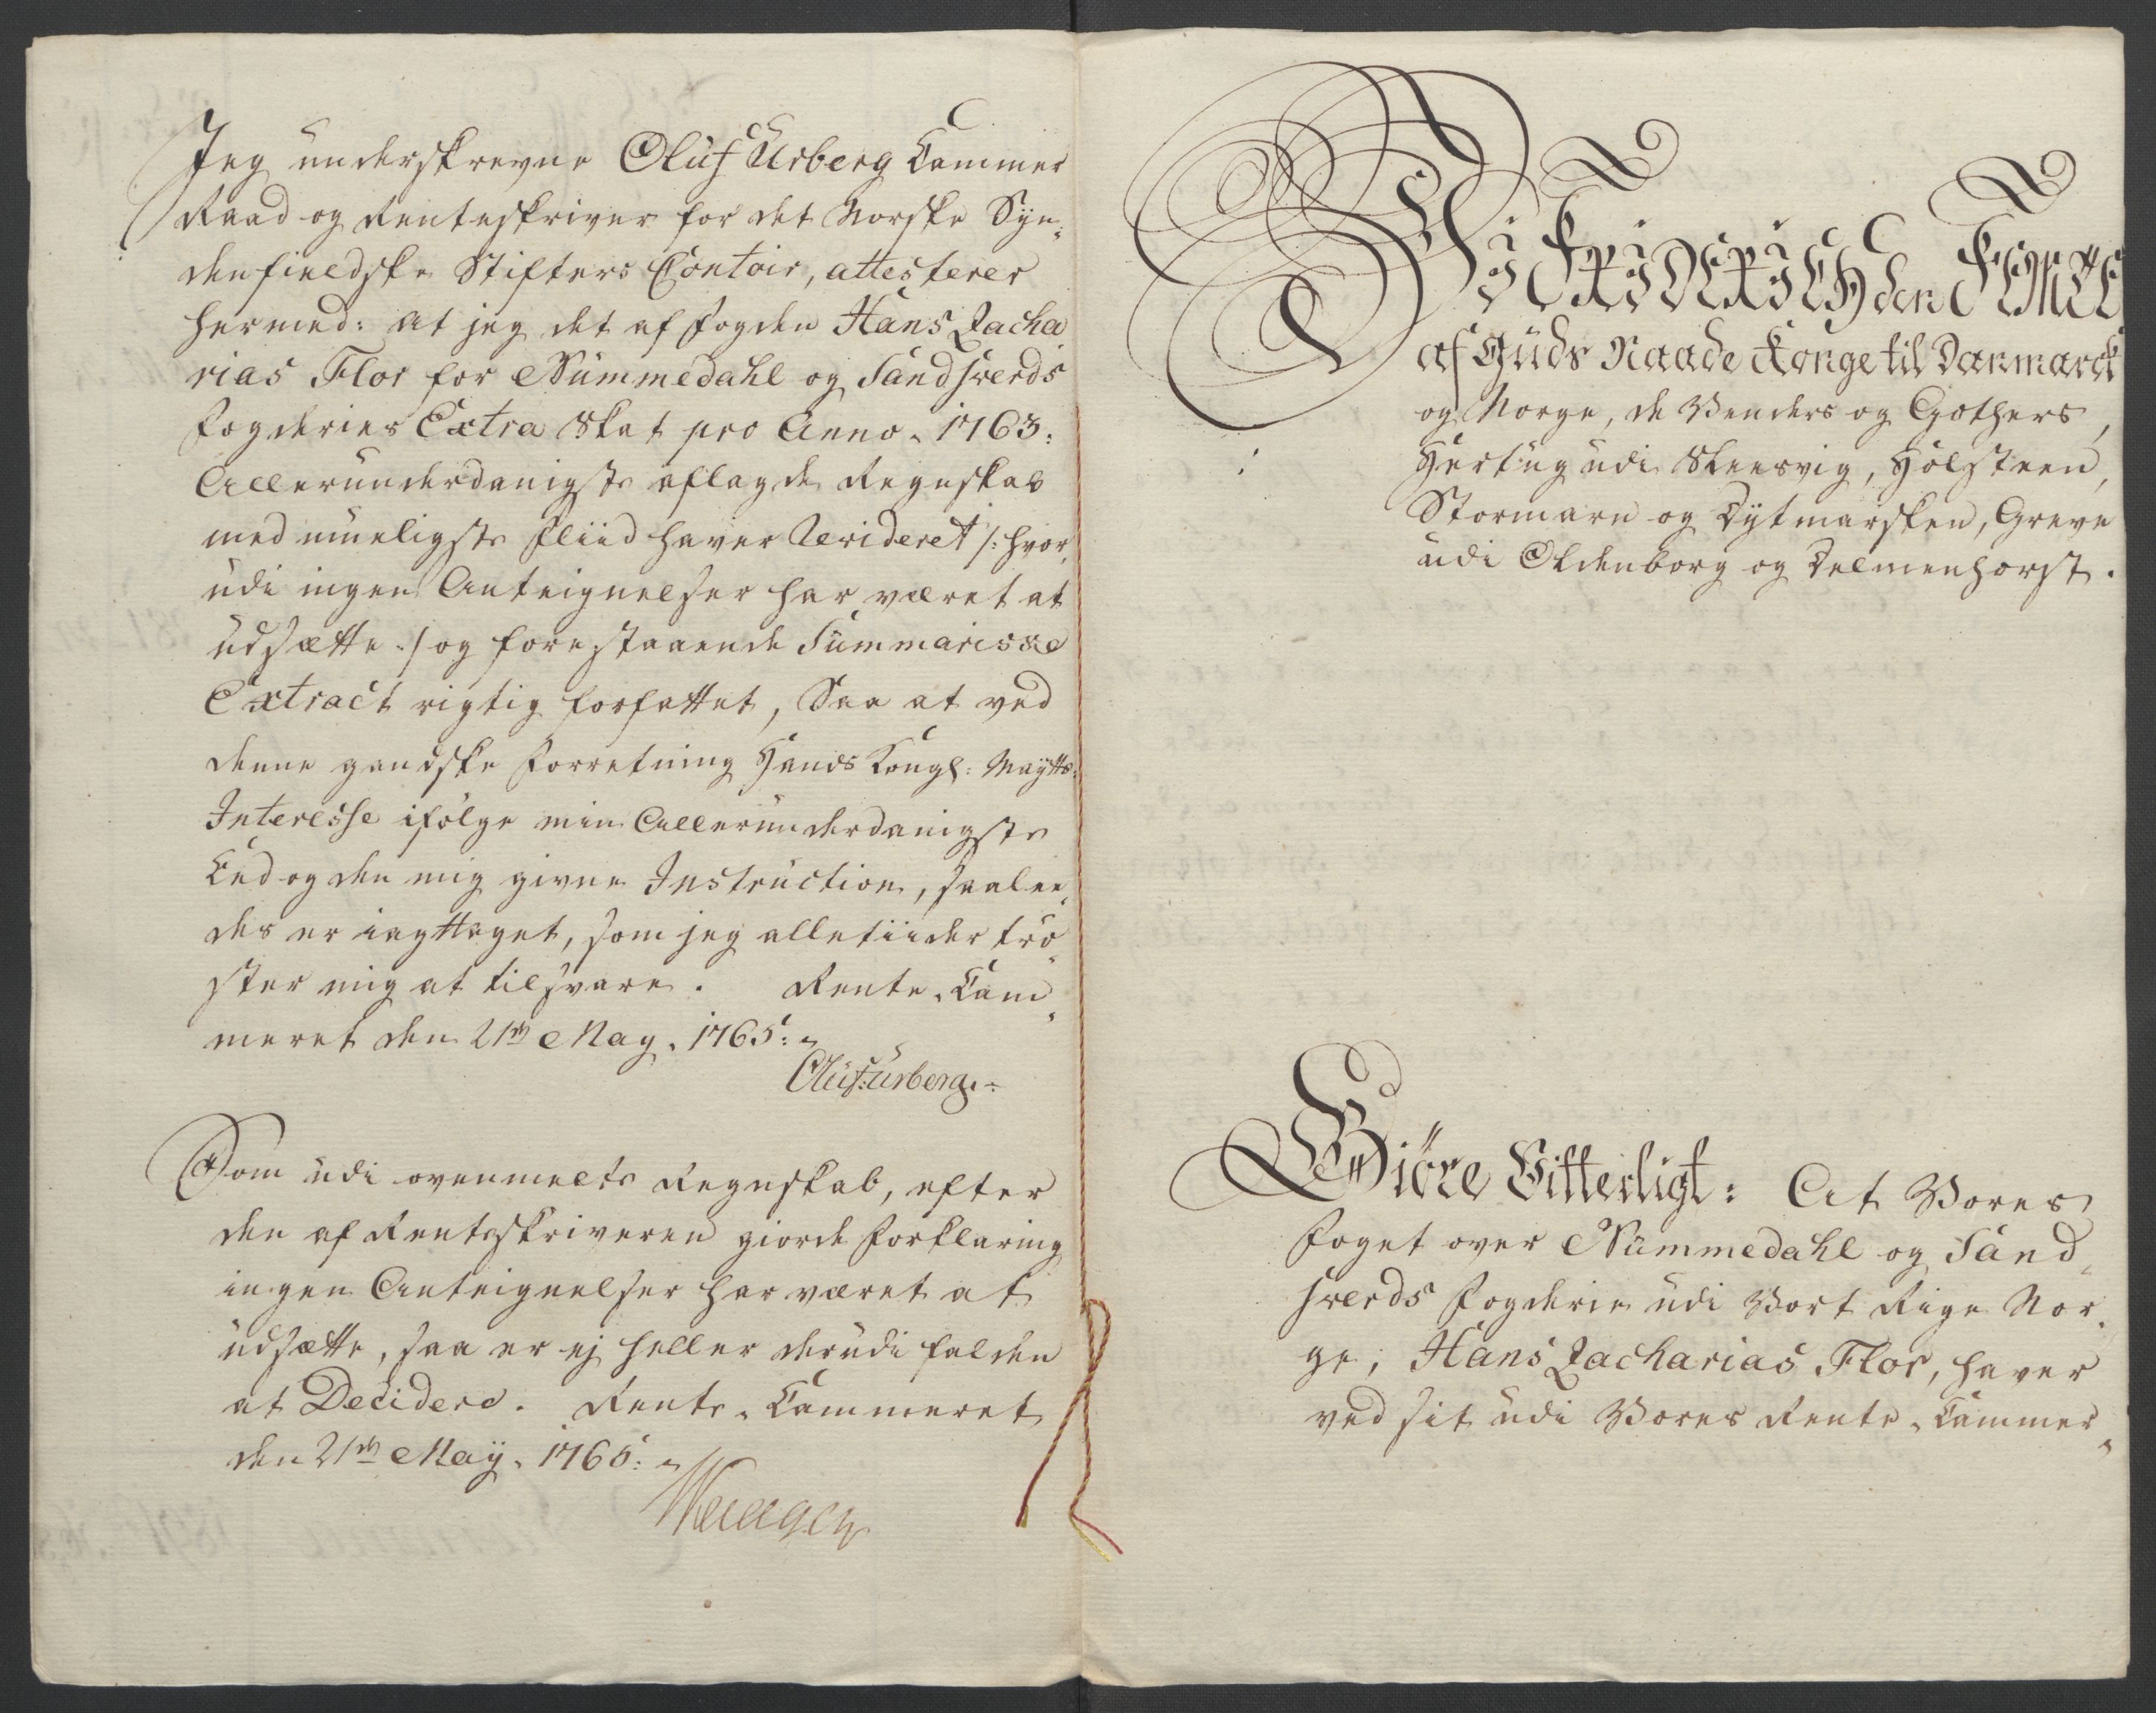 Jeg underskrevne Oluf Urberg Cammer
Raad og Renteskriver for det Norske Syn-
denfieldske Stifters Contoir, attesterer
hermed: at jeg det af Fogden Hans Zacha
rias Flor for Nummedahl og Sandsverds
Fogderies Extra Skat pro Anno 1763:
Allerunderdanigste aflagde Regnskab
med mueligste Fliid haver Revideret /: hvor,
udi ingen Anteignelser har været at
udsætte :/ og forestaaende Summariske
Extract rigtig forfattet, Saa at ved
denne gandske Forretning Hands Kongl: Maytts:
Interesse ifølge min Allerunderdanigste
Eed og den mig givne Instruction, saalee,
des er iagttaget, som jeg alletiider trö
ster mig at tilsvare. Rente-Cam
meret den 21de May. 1765:
Oluf Urberg.
Som udi ovenmelte Regnskab, efter
den af Renteskriveren giorde Forklaring
ingen Anteignelser har været at
udsætte, saa er ej heller derudi falden
at Decidere. Rente-Cammeret
den 21de May. 1765:
Wi FRIDERICH den FEMTE
af Guds Naade Konge til Danmarck
og Norge, de Venders og Gothers,
Hertug udi Sleesvig, Holsteen,
Stormarn og Dytmarsken, Greve
udi Oldenborg og Delmenhorst.
Giöre Vitterligt: At Vores
Foget over Nummedahl og Sand,
sverds Fogderie udi Vort Rige Nor.
ge, Hans Zacharias Flor, haver
ved sit udi Vores Rente-Cammer,